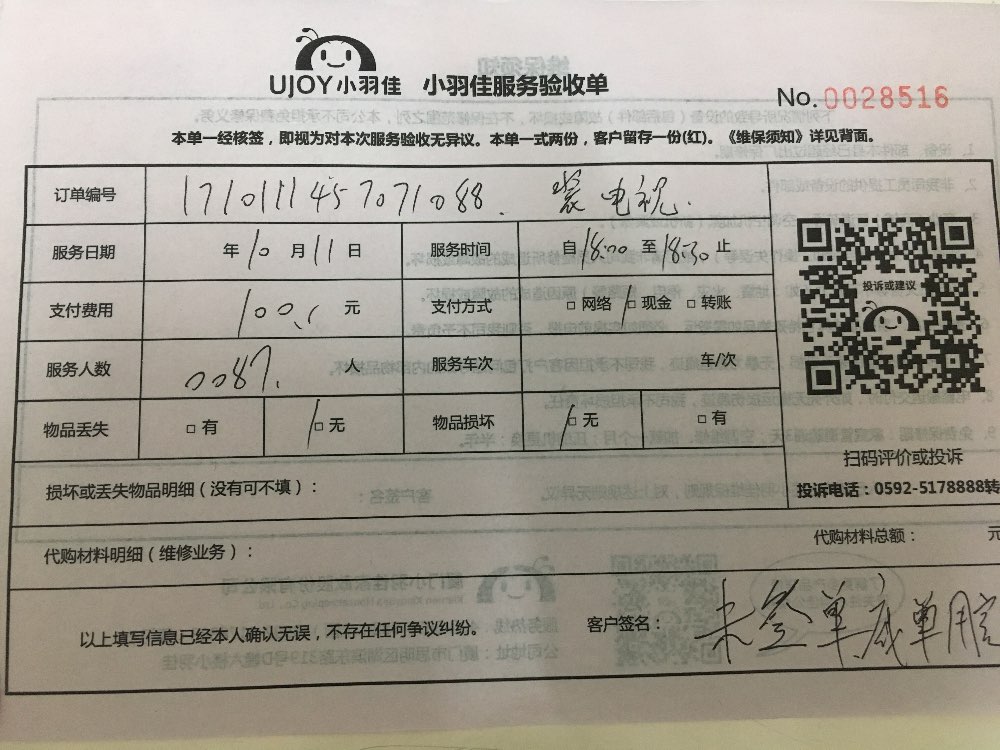 UJOY小羽佳 小羽佳服务验收单
No.0028516
本单一经核签，即视为对本次服务验收无异议。本单一式两份，客户留存一份(红)。《维保须知》详见背面。
订单编号 1710111457071088. 装电视.
服务日期 年10月11日 服务时间 自18:00至18:30止
支付费用 100 元 支付方式 □网络 □现金 □转账
服务人数 0087. 人 服务车次 车/次
物品丢失 □有 □无 物品损坏 □无 □有
投诉或建议
扫码评价或投诉
投诉电话：0592-5178888转
损坏或丢失物品明细（没有可不填）：
代购材料明细（维修业务）： 代购材料总额： 元
以上填写信息已经本人确认无误，不存在任何争议纠纷。 客户签名： 未签单底单